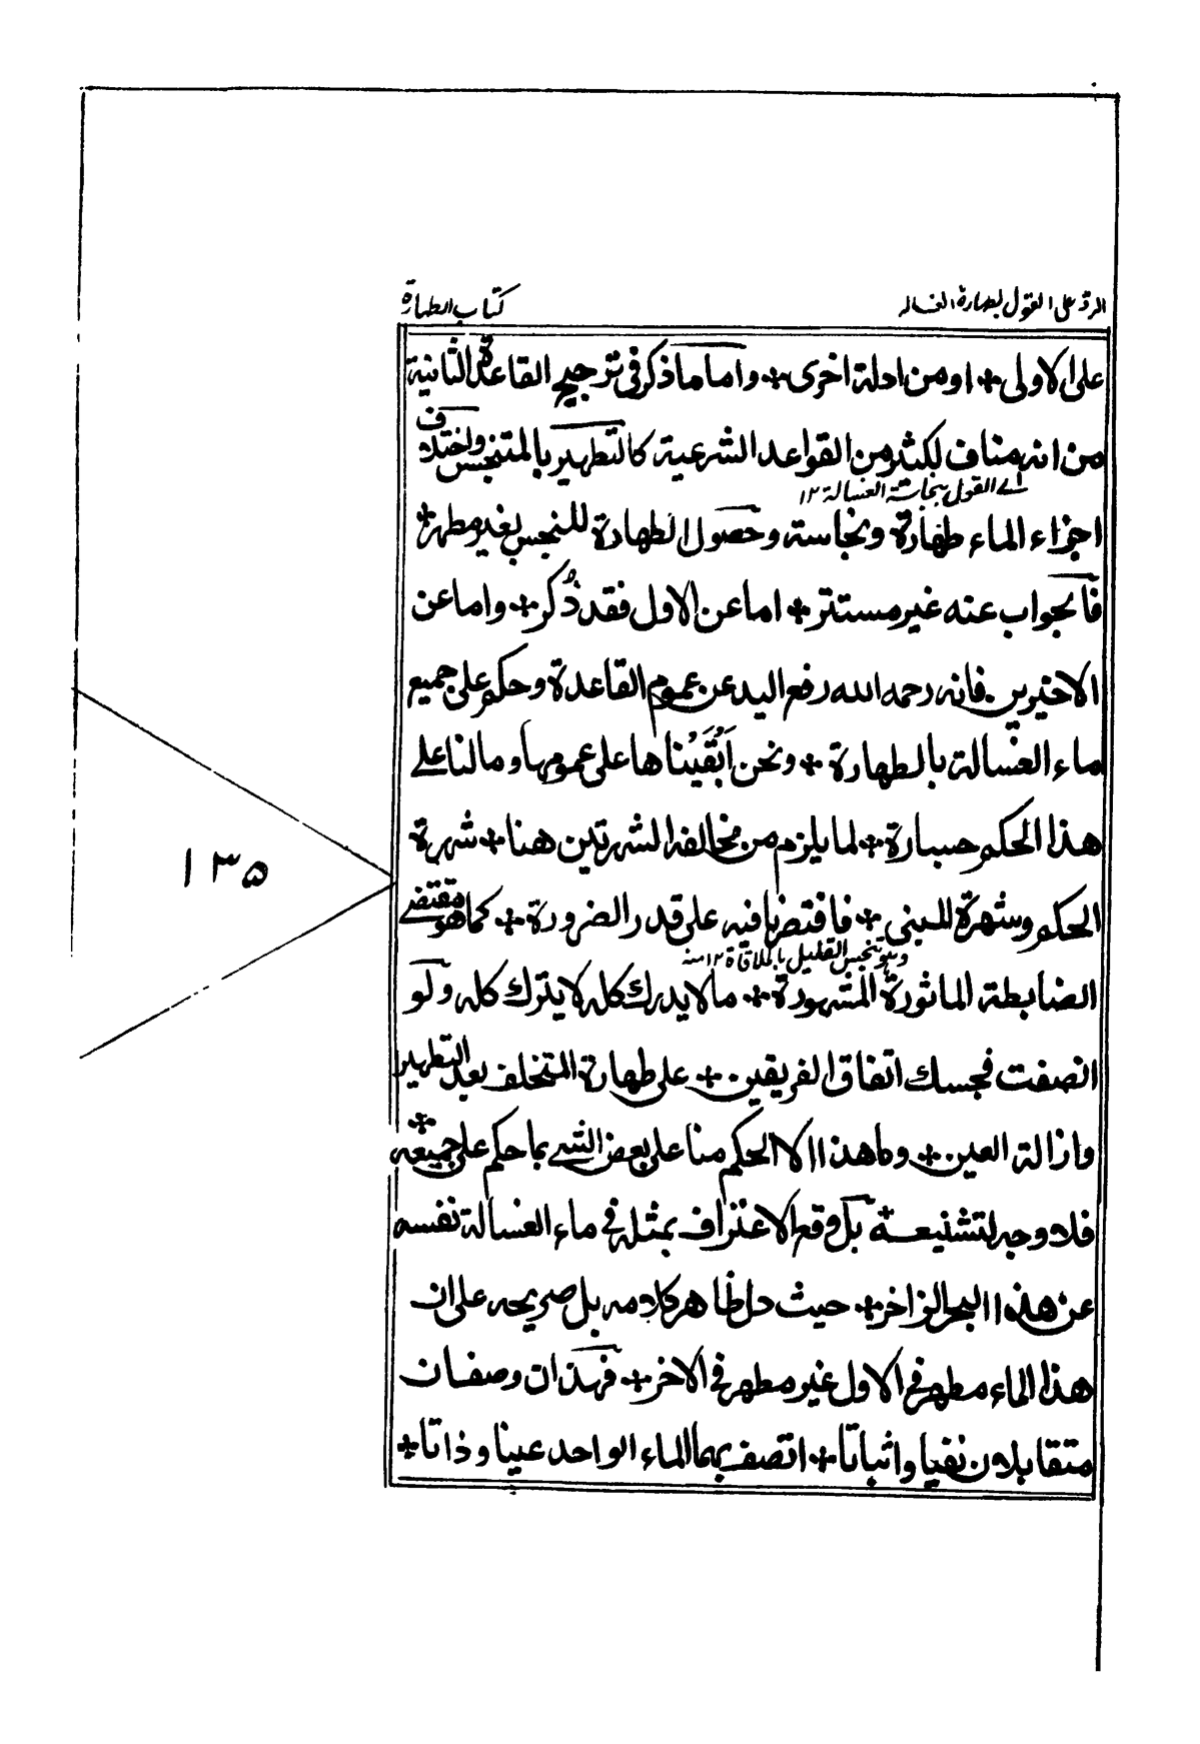 الرد على القول بطهارة الغسالة
كتاب الطهارة
على الاولى + او من ادلة اخرى + واما ما ذكر فى ترجيح القاعدة الثانية
من انه مناف لكثير من القواعد الشرعية كالتطهير بالمتنجس واختلاف
اے القول بنجاسة الغسالة ١٢
اجزاء الماء طهارة ونجاسة وحصول الطهارة للنجس بغير مطهر +
فالجواب عنه غير مستتر + اما عن الاول فقد ذُكر + واما عن
الاخيرين فانه رحمه الله رفع اليد عن عموم القاعدة وحكم على جميع
ماء الغسالة بالطهارة + ونحن اَبْقَيْنَاها على عمومها وما لنا على
هذا الحكم جسارة + لما يلزم من مخالفة الشهرتين هنا + شهرة
الحكم وشهرة المبنى + فاقتصرنا فيه على قدر الضرورة + كما هو مقتضے
وهو تنجس القليل بالملاقاة ١٢ منه
الضابطة الماثورة المشهورة + ما لا يدرك كله لا يترك كله ولو
انصفت فحسبك اتفاق الفريقين + على طهارة المتخلف بعد التطهير
وازالة العين + وما هذا الا الحكم منا على بعض الشے بما حكم على جميعه +
فلا وجه لتشنيعه + بل وقع الاعتراف بمثله فى ماء الغسالة نفسه
عن هذا البحر الزاخر + حيث دل ظاهر كلامه بل صريحه على ان
هذا الماء مطهر فى الاول غير مطهر فى الاخر + فهذان وصفان
متقابلان نفيا واثباتا + اتصف بهما الماء الواحد عينا وذاتا +
١٣٥